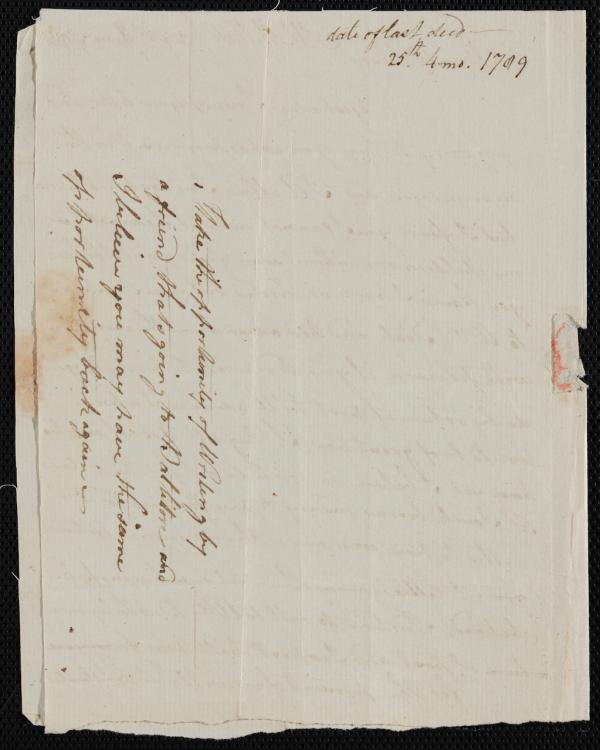 date of last deed —
25th. 4 mo. 1789
Take the opportunity of Writing by
a friend thats going to and
I believe you may have the same
opportunity back again —